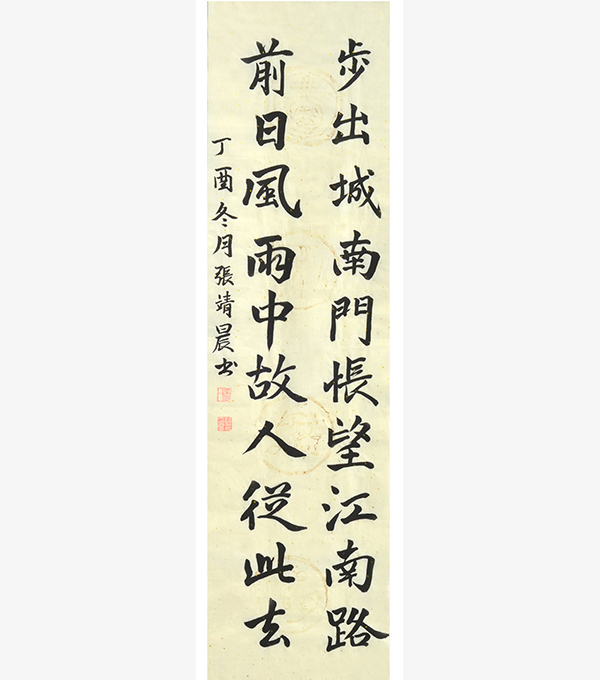 步出城南門悵望江南路
前日風雨中故人從此去
丁酉冬月張靖晨书